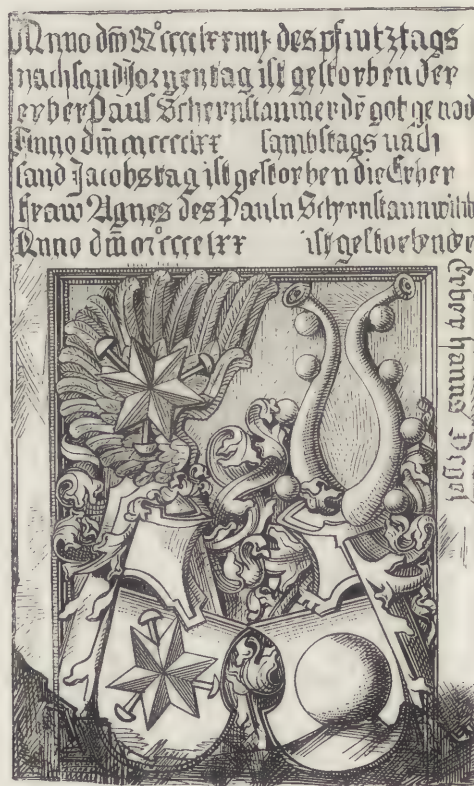 Anno dm̄ Mº cccclxxiiii des pfintztags
nach sand Jorgentag ist gestorben der
erber Paul Schernstainner dē got genad
Anno dm̄ mccccclxx sambstags nach
sand Jacobstag ist gestorben die Erber
fraw Agnes des Pauln
Anno dm̄ mcccclxx ist gestorben der
Erber hanns Nigel